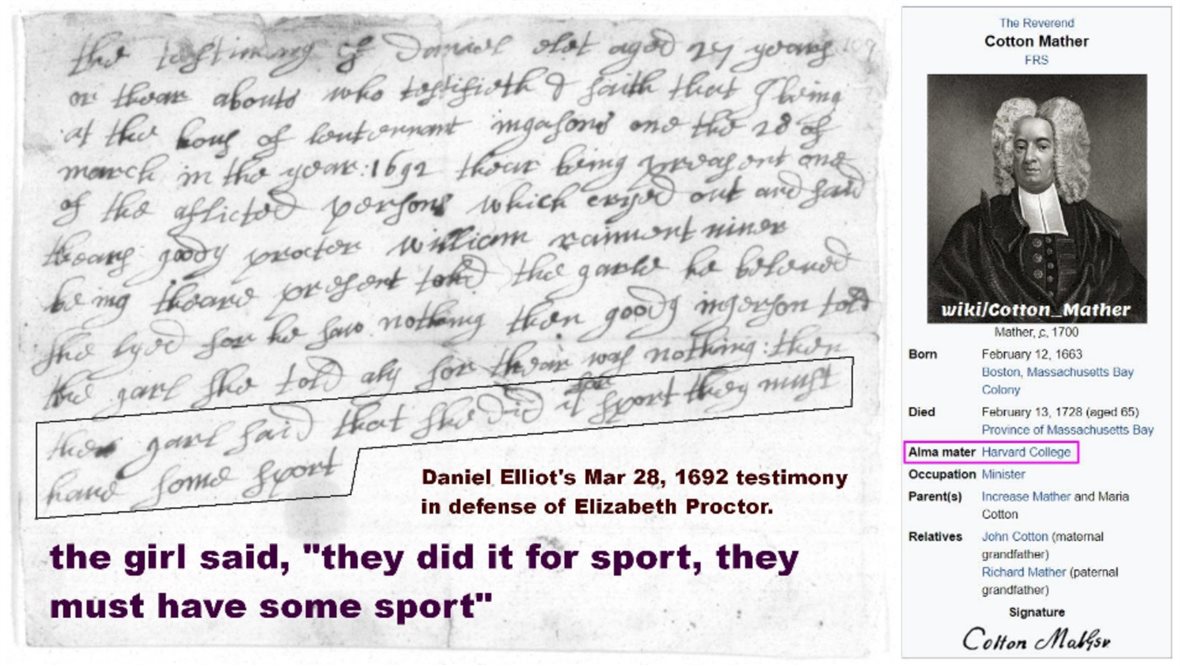 the testimony of Daniel elet aged 27 years
or thear abouts who testifieth & saith that I being
at the hous of leutennant ingasons one the 28 of
march in the year:1692 thear being preasent one
of the aflicted persons which cryed out and said
thears goody procter William raiment iuner
being theare present told the garle he beleved
she lyed for he saw nothing then goody ingerson told
the garl she told aly for thear was nothing: then
the garl said that she did it for sport they must
have some sport
Daniel Elliot's Mar 28, 1692 testimony
in defense of Elizabeth Proctor.
the girl said, "they did it for sport, they
must have some sport"
The Reverend
Cotton Mather
FRS
wiki/Cotton_Mather
Mather, c. 1700
Born February 12, 1663
Boston, Massachusetts Bay
Colony
Died February 13, 1728 (aged 65)
Province of Massachusetts Bay
Alma mater Harvard College
Occupation Minister
Parent(s) Increase Mather and Maria
Cotton
Relatives John Cotton (maternal
grandfather)
Richard Mather (paternal
grandfather)
Signature
Cotton Mather